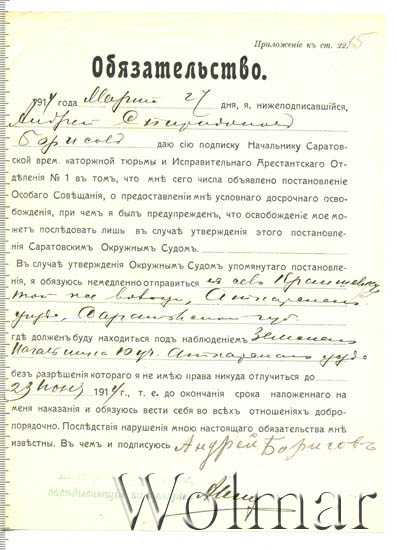 Приложеніе къ ст. 22.15
Обязательство.
1914 года Марта 27 дня, я, нижеподписавшійся,
Андрей
Борисовъ даю сію подписку Начальнику Саратов-
ской врем. каторжной тюрьмы и Исправительнаго Арестантскаго От-
дѣленія № 1 въ томъ, что мнѣ сего числа объявлено постановленіе
Особаго Совѣщанія, о предоставленіи мнѣ условнаго досрочнаго осво-
божденія, при чемъ я былъ предупрежденъ, что освобожденіе мое мо-
жетъ послѣдовать лишь въ случаѣ утвержденія этого постановле-
нія Саратовскимъ Окружнымъ Судомъ.
Въ случаѣ утвержденія Окружнымъ Судомъ упомянутаго постановле-
нія, я обязуюсь немедленно отправиться село
той же волости, Аткарскаго
уѣзда, Саратовской губ.
гдѣ долженъ буду находиться подъ наблюденіемъ Земскаго
Начальника уч. Аткарскаго уѣзда
безъ разрѣшенія котораго я не имѣю права никуда отлучиться до
23 Іюня 1914 г., т. е. до окончанія срока наложеннаго на
меня наказанія и обязуюсь вести себя во всѣхъ отношеніяхъ добро-
порядочно. Послѣдствія нарушенія мною настоящаго обязательства мнѣ
извѣстны. Въ чемъ и подписуюсь Андрей Борисовъ
Wolmar